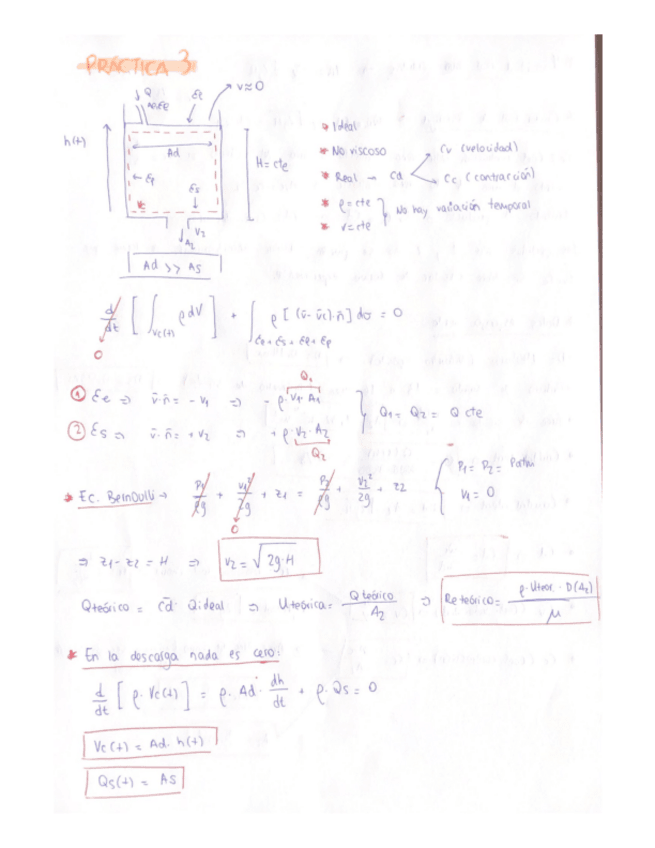 PRÁCTICA 3
Q
Σe
v≈0
h(t)
Ad
H = cte
Σp
Σs
Vc
V2
A2
Ad >> As
* Ideal
* No viscoso
* Real → Cd
Cv (velocidad)
Cc (contracción)
* ρ = cte
* v = cte
No hay variación temporal
d/dt [ ∫Vc(t) ρ dV ] + ∫Σe+Σs+Σp+Σp ρ [ (v̄ - v̄c)·n̄ ] dσ = 0
0
Q1
① Σe ⇒ v̄·n̄ = - v1 ⇒ - ρ·V1·A1
② Σs ⇒ v̄·n̄ = + v2 ⇒ + ρ·V2·A2
Q2
Q1 = Q2 = Q cte
* Ec. Bernoulli → P1/ρg + v1²/2g + z1 = P2/ρg + v2²/2g + z2
0
P1 = P2 = Patm
V1 = 0
⇒ z1 - z2 = H ⇒ v2 = √2g·H
Qteórico = c̄d · Qideal ⇒ Uteórica = Qteórico/A2 ⇒ Reteórico = ρ·Uteor.·D(A2)/μ
* En la descarga nada es cero:
d/dt [ ρ·Vc(t) ] = ρ·Ad·dh/dt + ρ·Qs = 0
Vc(t) = Ad·h(t)
Qs(t) = As